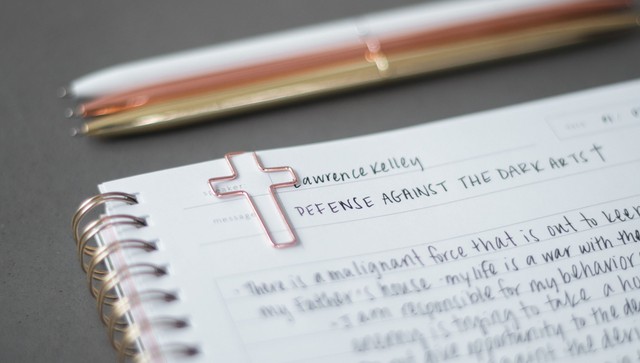 speaker Lawrence Kelley
message DEFENSE AGAINST THE DARK ARTS
- There is a malignant force that is out to keep
my Father's house my life is a war with the
- I am responsible for my behavior
enemy is trying to take a
give opportunity to the
against the